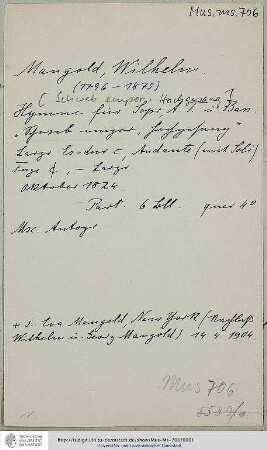 Mus. ms. 706
Mangold, Wilhelm.
(1796 – 1875)
[Schweb empor, Hochgesang]
Hymne für Sopr. A. T. u. Bass
"Schweb empor, Hochgesang"
Largo Es-dur C, Andante (mit Soli)
Fuge ¢, – Largo
Oktober 1824
Part. 6 Bll. quer 4°
Ms. Autogr.
+ s. Eva Mangold, New York (Nachlaß
Wilhelm u. Georg Mangold) 14. 4. 1904
Mus 706
TECHNISCHE
UNIVERSITÄT
DARMSTADT
Universitäts- und Landesbibliothek Darmstadt